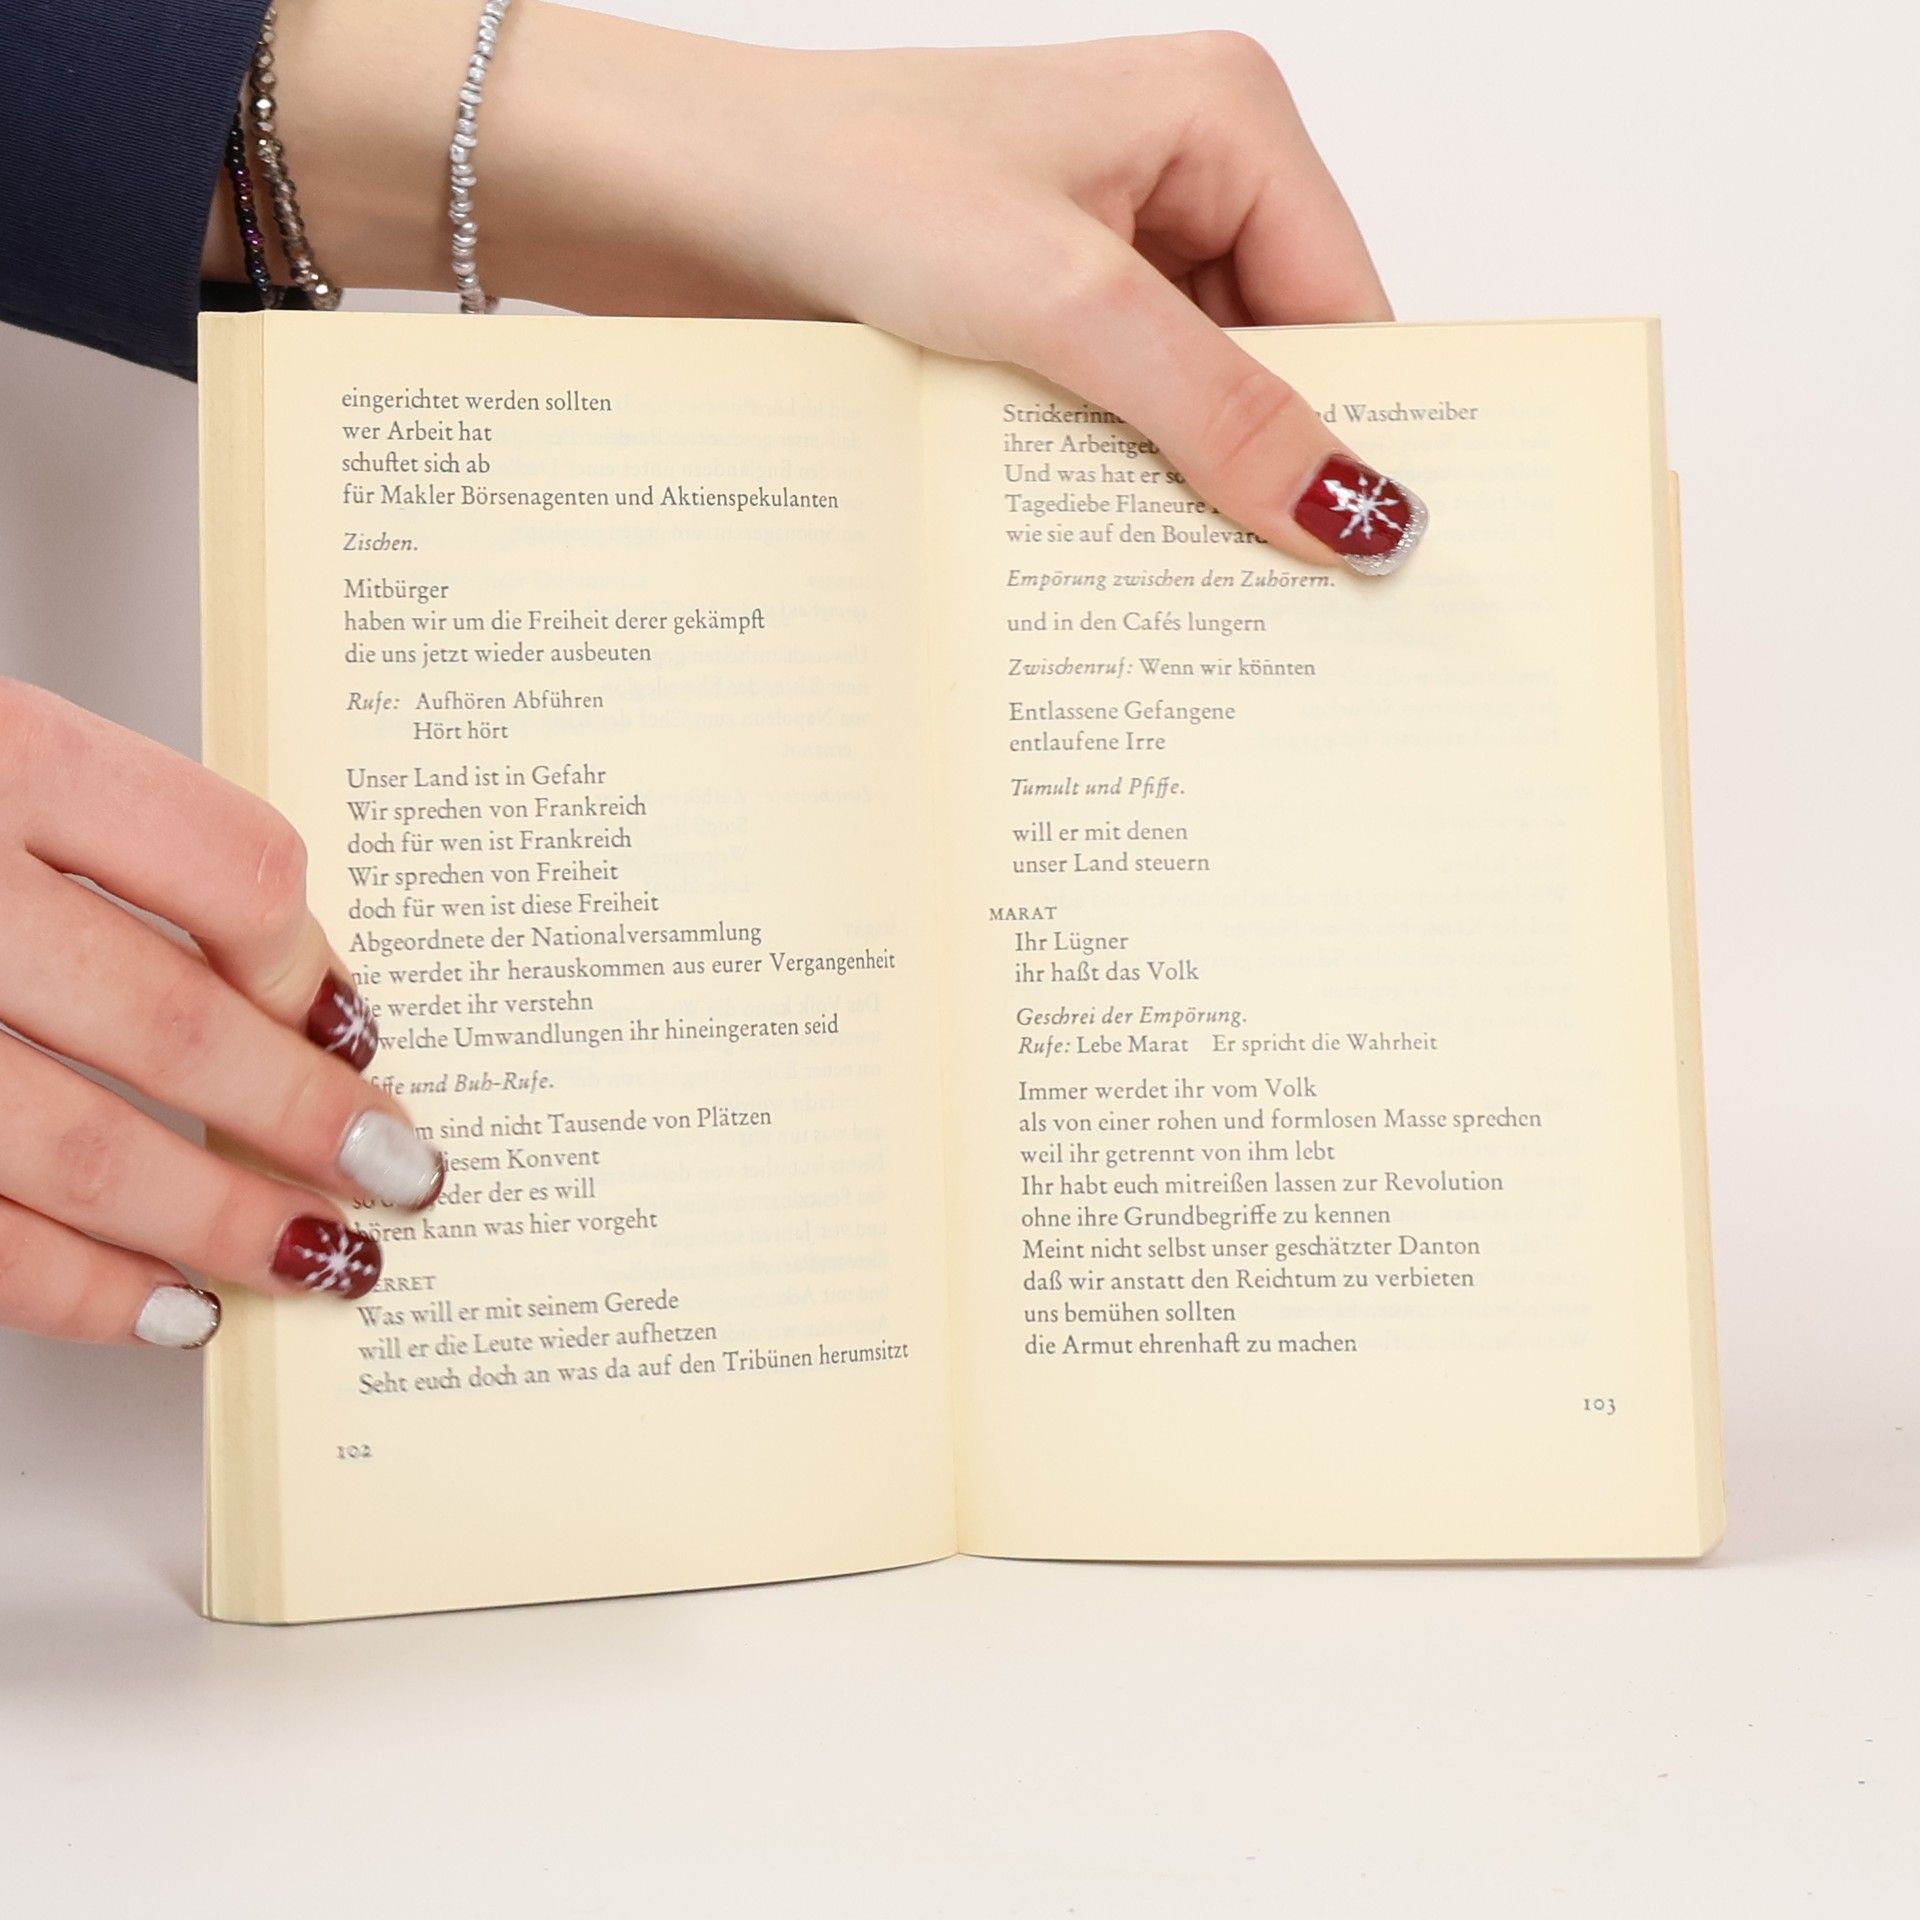 eingerichtet werden sollten
wer Arbeit hat
schuftet sich ab
für Makler Börsenagenten und Aktienspekulanten
Zischen.
Mitbürger
haben wir um die Freiheit derer gekämpft
die uns jetzt wieder ausbeuten
Rufe: Aufhören Abführen
Hört hört
Unser Land ist in Gefahr
Wir sprechen von Frankreich
doch für wen ist Frankreich
Wir sprechen von Freiheit
doch für wen ist diese Freiheit
Abgeordnete der Nationalversammlung
nie werdet ihr herauskommen aus eurer Vergangenheit
werdet ihr verstehn
welche Umwandlungen ihr hineingeraten seid
und Buh-Rufe.
sind nicht Tausende von Plätzen
diesem Konvent
jeder der es will
hören kann was hier vorgeht
Was will er mit seinem Gerede
will er die Leute wieder aufhetzen
Seht euch doch an was da auf den Tribünen herumsitzt
102
Waschweiber
ihrer
Und was hat er
Tagediebe Flaneure
wie sie auf den
Empörung zwischen den Zuhörern.
und in den Cafés lungern
Zwischenruf: Wenn wir könnten
Entlassene Gefangene
entlaufene Irre
Tumult und Pfiffe.
will er mit denen
unser Land steuern
MARAT
Ihr Lügner
ihr haßt das Volk
Geschrei der Empörung.
Rufe: Lebe Marat Er spricht die Wahrheit
Immer werdet ihr vom Volk
als von einer rohen und formlosen Masse sprechen
weil ihr getrennt von ihm lebt
Ihr habt euch mitreißen lassen zur Revolution
ohne ihre Grundbegriffe zu kennen
Meint nicht selbst unser geschätzter Danton
daß wir anstatt den Reichtum zu verbieten
uns bemühen sollten
die Armut ehrenhaft zu machen
103